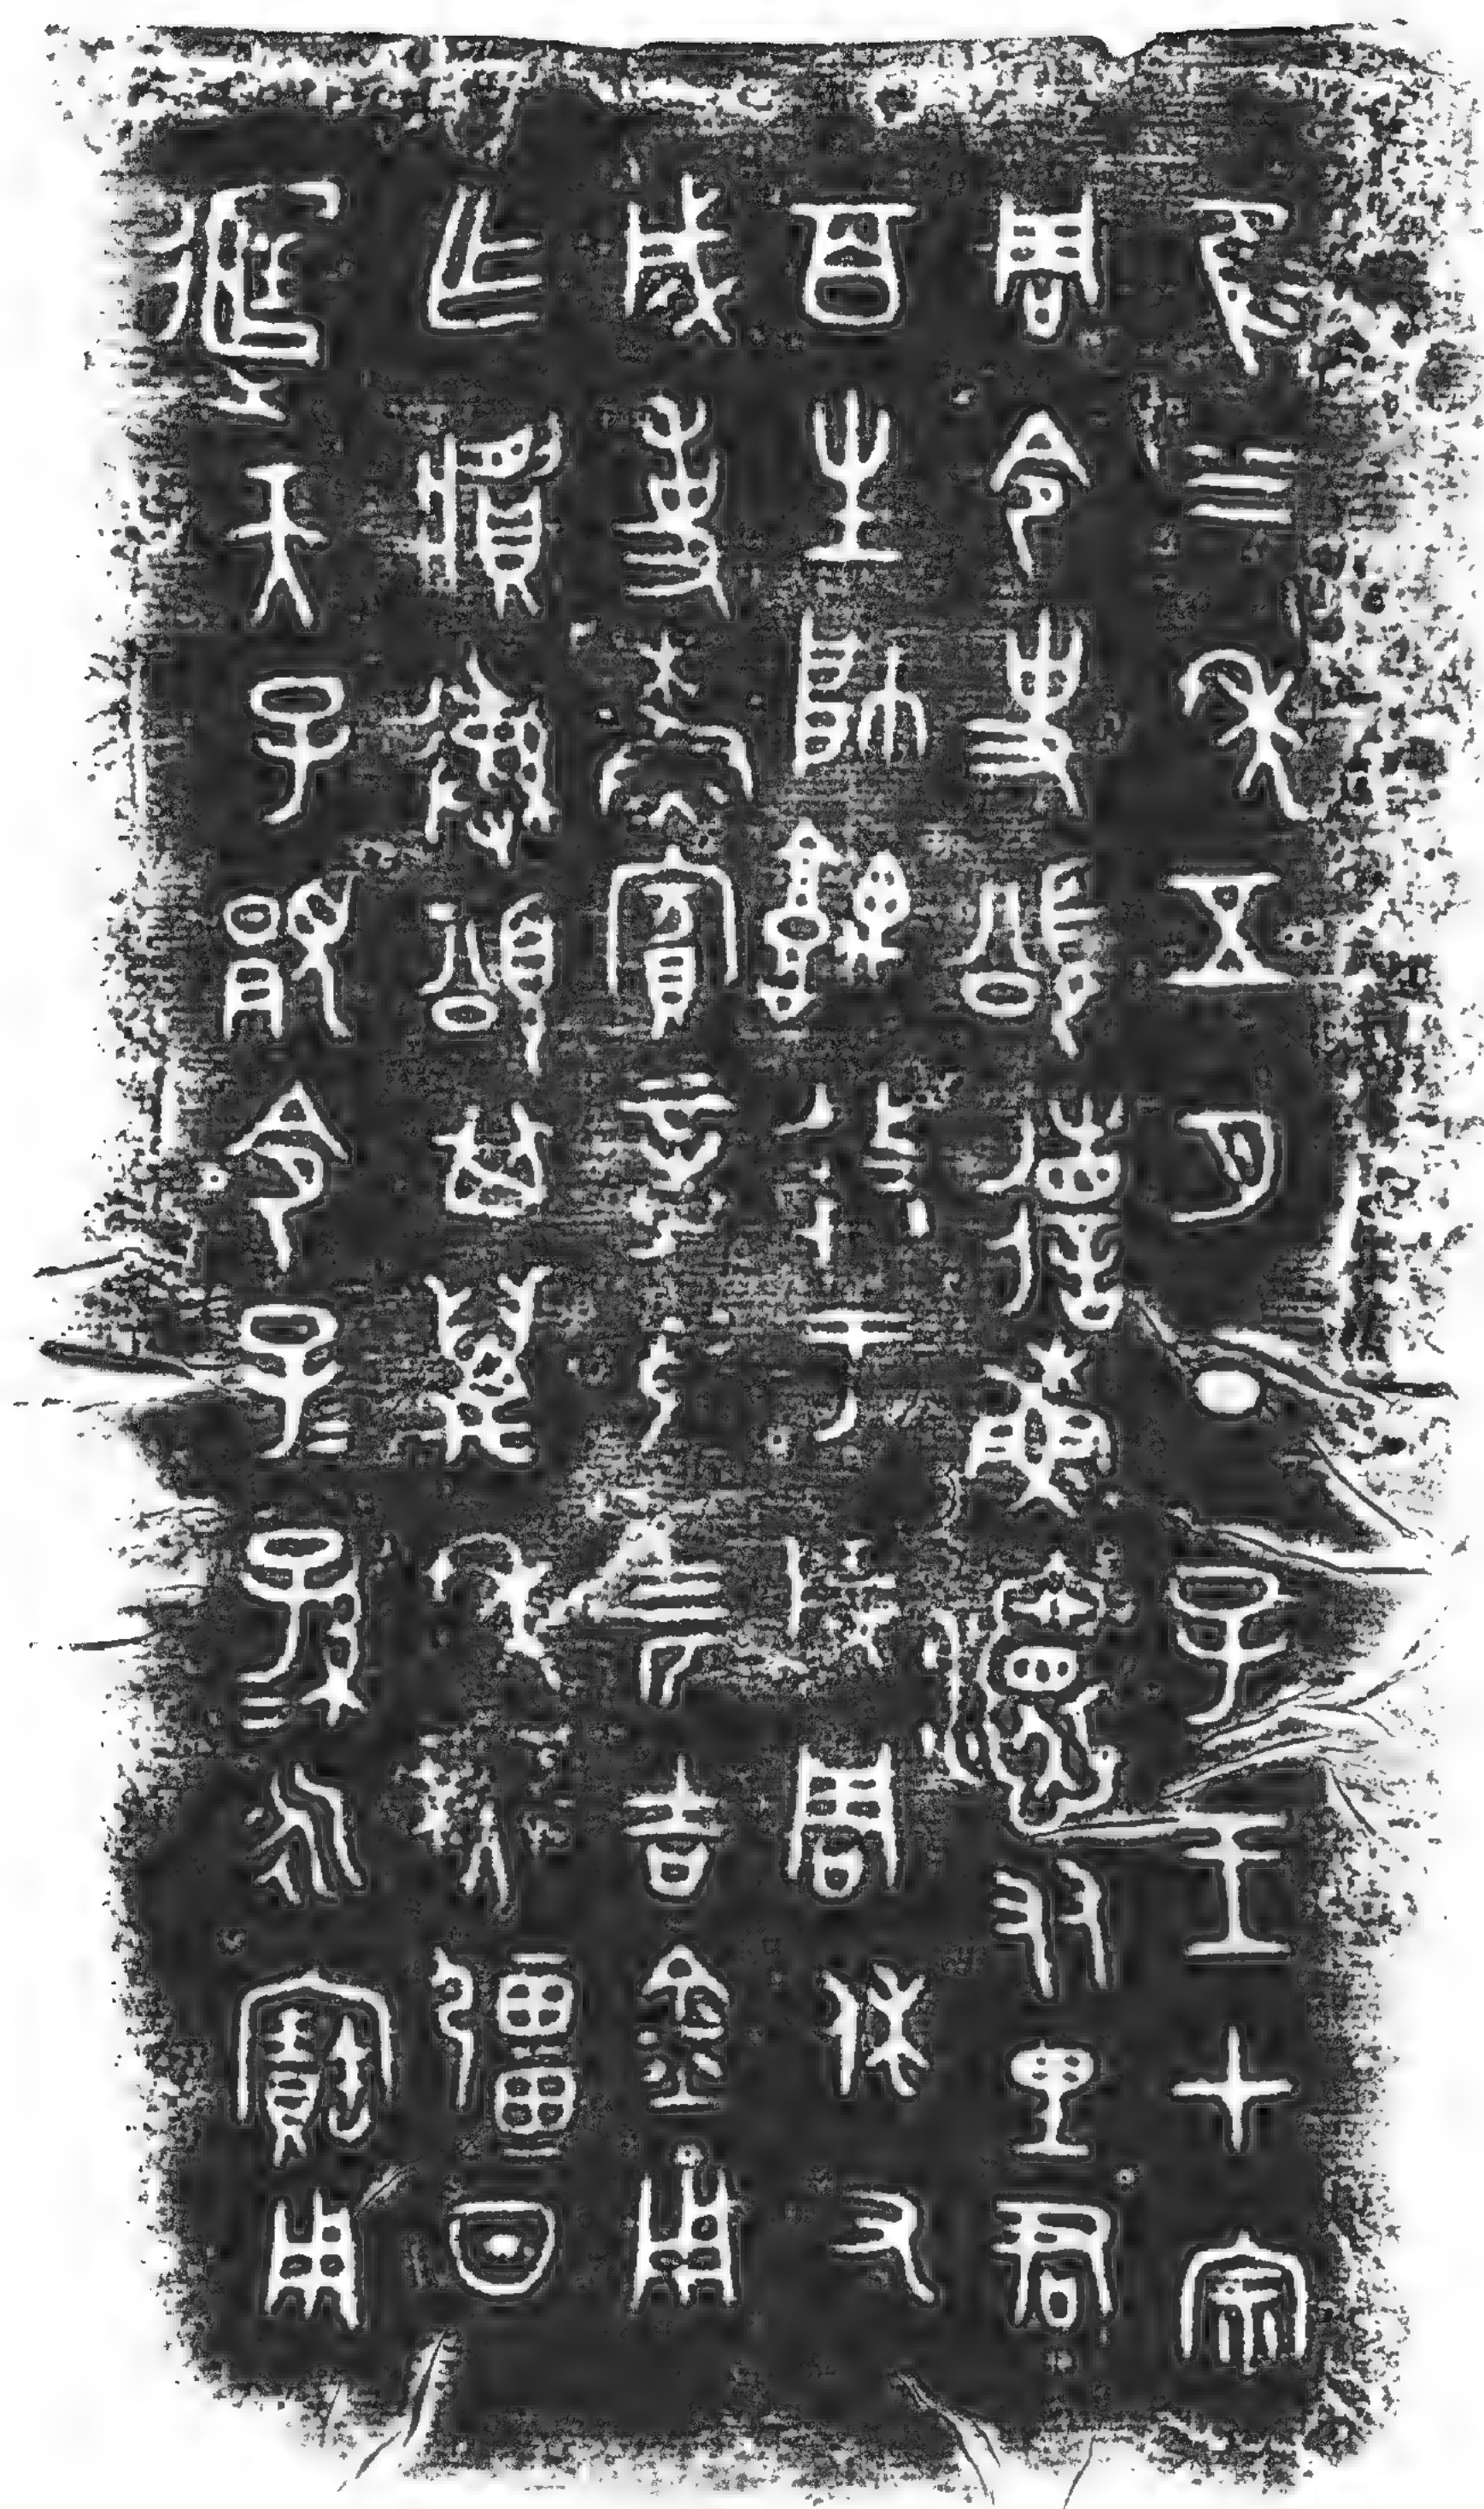 隹三年五月丁子王才宗
周令史頌省穌𤅊友里君
百生帥𩛥盩于成周休又
成事穌賓章馬四匹吉金用
乍䵼彝頌其萬年無疆日
𨒙天子𩁹令子=孫=永寶用